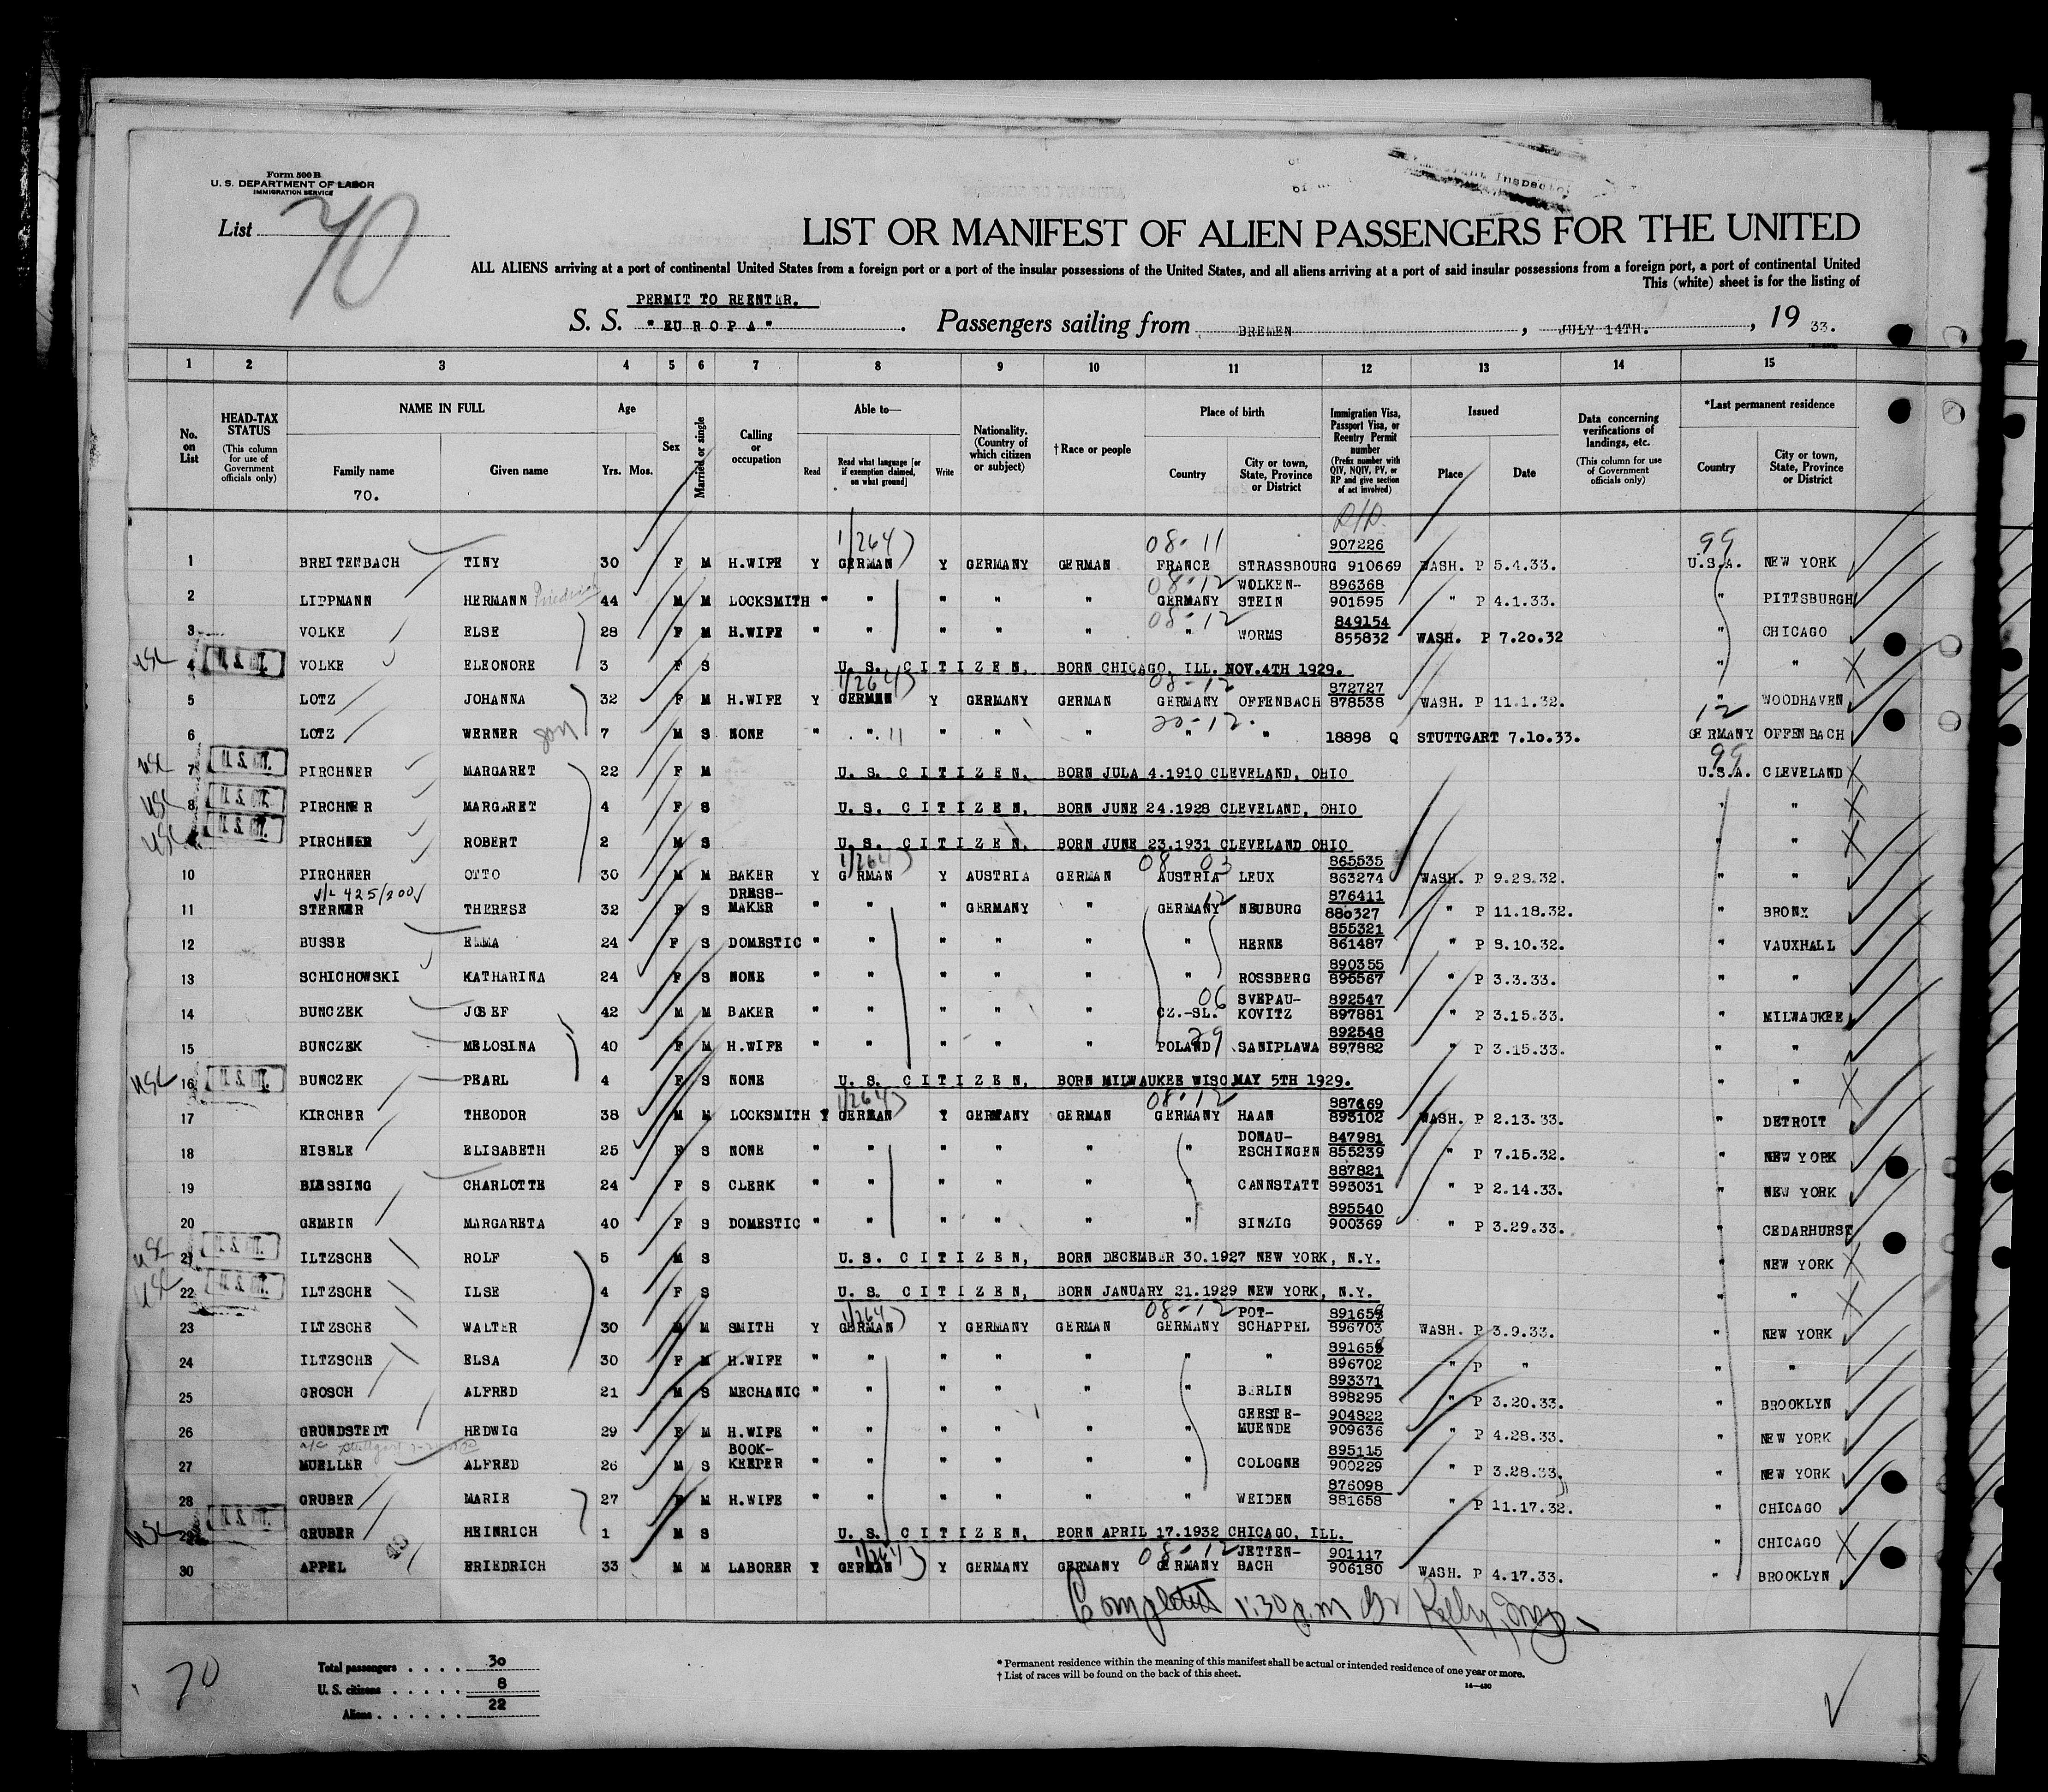 Form 500 B
U. S. DEPARTMENT OF LABOR
IMMIGRATION SERVICE
List 70
LIST OR MANIFEST OF ALIEN PASSENGERS FOR THE UNITED
ALL ALIENS arriving at a port of continental United States from a foreign port or a port of the insular possessions of the United States, and all aliens arriving at a port of said insular possessions from a foreign port, a port of continental United
This (white) sheet is for the listing of
PERMIT TO REENTER.
S. S. "EUROPA". Passengers sailing from BREMEN, JULY 14TH., 19 33.
1 2 3 4 5 6 7 8 9 10 11 12 13 14 15
No. on List
HEAD-TAX STATUS (This column for use of Government officials only)
NAME IN FULL
Family name
Given name
70.
Age
Yrs. Mos.
Sex
Married or single
Calling or occupation
Able to—
Read
Read what language [or if exemption claimed, on what ground]
Write
Nationality. (Country of which citizen or subject)
† Race or people
Place of birth
Country
City or town, State, Province or District
Immigration Visa, Passport Visa, or Reentry Permit number (Prefix number with QIV, NQIV, PV, or RP and give section of act involved)
Issued
Place
Date
Data concerning verifications of landings, etc. (This column for use of Government officials only)
*Last permanent residence
Country
City or town, State, Province or District
R/P
1/264 08-11 907226 99
1 BREITENBACH TINY 30 F M H.WIFE Y GERMAN Y GERMANY GERMAN FRANCE STRASSBOURG 910669 WASH. P 5.4.33. U.S.A. NEW YORK
08-12 WOLKEN- 896368
2 LIPPMANN HERMANN 44 M M LOCKSMITH " " " " " GERMANY STEIN 901595 " P 4.1.33. " PITTSBURGH
08-12 849154
3 VOLKE ELSE 28 F M H.WIFE " " " " " " WORMS 855832 WASH. P 7.20.32 " CHICAGO
USC U. S. CIT. 4 VOLKE ELEONORE 3 F S U. S. CITIZEN, BORN CHICAGO, ILL. NOV.4TH 1929. " "
1/264 08-12 872727
5 LOTZ JOHANNA 32 F M H.WIFE Y GERMAN Y GERMANY GERMAN GERMANY OFFENBACH 878538 WASH. P 11.1.32. " WOODHAVEN
20-12. 12
6 LOTZ WERNER son 7 M S NONE " " " " " " " 18898 Q STUTTGART 7.10.33. GERMANY OFFENBACH
99
USC U. S. CIT. 7 PIRCHNER MARGARET 22 F M U. S. CITIZEN, BORN JULA 4.1910 CLEVELAND, OHIO U.S.A. CLEVELAND
USC U. S. CIT. 8 PIRCHNER MARGARET 4 F S U. S. CITIZEN, BORN JUNE 24.1928 CLEVELAND, OHIO " "
USC U. S. CIT. PIRCHNER ROBERT 2 M S U. S. CITIZEN, BORN JUNE 23.1931 CLEVELAND OHIO " "
1/264 08 03 865535
10 PIRCHNER OTTO 30 M M BAKER Y GERMAN Y AUSTRIA GERMAN AUSTRIA LEUX 863274 WASH. P 9.23.32. " "
V/L 425/200 DRESS- 12 876411
11 STERNER THERESE 32 F S MAKER " " " GERMANY " GERMANY NEUBURG 880327 " P 11.18.32. " BRONX
855321
12 BUSSE EMMA 24 F S DOMESTIC " " " " " " HERNE 861487 " P 8.10.32. " VAUXHALL
890355
13 SCHICHOWSKI KATHARINA 24 F S NONE " " " " " " ROSSBERG 895567 " P 3.3.33. " "
06 SVEPAU- 892547
14 BUNCZEK JOSEF 42 M M BAKER " " " " " CZ.-SL. KOVITZ 897881 " P 3.15.33. " MILWAUKEE
29 892548
15 BUNCZEK MELOSINA 40 F M H.WIFE " " " " " POLAND SANIPLAWA 897882 " P 3.15.33. " "
USC U. S. CIT. 16 BUNCZEK PEARL 4 F S NONE U. S. CITIZEN, BORN MILWAUKEE WISC MAY 5TH 1929. " "
1/264 08-12 887669
17 KIRCHER THEODOR 38 M M LOCKSMITH Y GERMAN Y GERMANY GERMAN GERMANY HAAN 893102 WASH. P 2.13.33. DETROIT
DONAU- 847981
18 EISELE ELISABETH 25 F S NONE " " " " " " ESCHINGEN 855239 " P 7.15.32. " NEW YORK
887821
19 BLESSING CHARLOTTE 24 F S CLERK " " " " " " CANNSTATT 893031 " P 2.14.33. " NEW YORK
895540
20 GEMEIN MARGARETA 40 F S DOMESTIC " " " " " " SINZIG 900369 " P 3.29.33. " CEDARHURST
USC U. S. CIT. 21 ILTZSCHE ROLF 5 M S U. S. CITIZEN, BORN DECEMBER 30.1927 NEW YORK, N.Y. " NEW YORK
USC U. S. CIT. 22 ILTZSCHE ILSE 4 F S U. S. CITIZEN, BORN JANUARY 21.1929 NEW YORK, N.Y. " "
1/264 08-12 POT- 891659
23 ILTZSCHE WALTER 30 M M SMITH Y GERMAN Y GERMANY GERMAN GERMANY SCHAPPEL 896703 WASH. P 3.9.33. " NEW YORK
891658
24 ILTZSCHE ELSA 30 F M H.WIFE " " " " " " " 896702 " P " " "
893371
25 GROSCH ALFRED 21 M S MECHANIC " " " " " " BERLIN 898295 " P 3.20.33. " BROOKLYN
GEESTE- 904822
26 GRUNDSTEDT HEDWIG 29 F M H.WIFE " " " " " " MUENDE 909636 " P 4.28.33. " NEW YORK
BOOK- 895115
27 MUELLER ALFRED 26 M S KEEPER " " " " " " COLOGNE 900229 " P 3.28.33. " NEW YORK
876098
28 GRUBER MARIE 27 F M H.WIFE " " " " " " WEIDEN 881658 " P 11.17.32. " CHICAGO
USC U. S. CIT. 29 GRUBER HEINRICH 1 M S U. S. CITIZEN, BORN APRIL 17.1932 CHICAGO, ILL. " CHICAGO
1/264 08-12 JETTEN- 901117
30 APPEL FRIEDRICH 33 M M LABORER Y GERMAN Y GERMANY GERMANY GERMANY BACH 906180 WASH. P 4.17.33. " BROOKLYN
Completed 1:30 p.m. Kelly, Insp.
70
Total passengers . . . . 30
U. S. citizens . . . . . 8
Aliens . . . . . . 22
* Permanent residence within the meaning of this manifest shall be actual or intended residence of one year or more.
† List of races will be found on the back of this sheet.
14—430